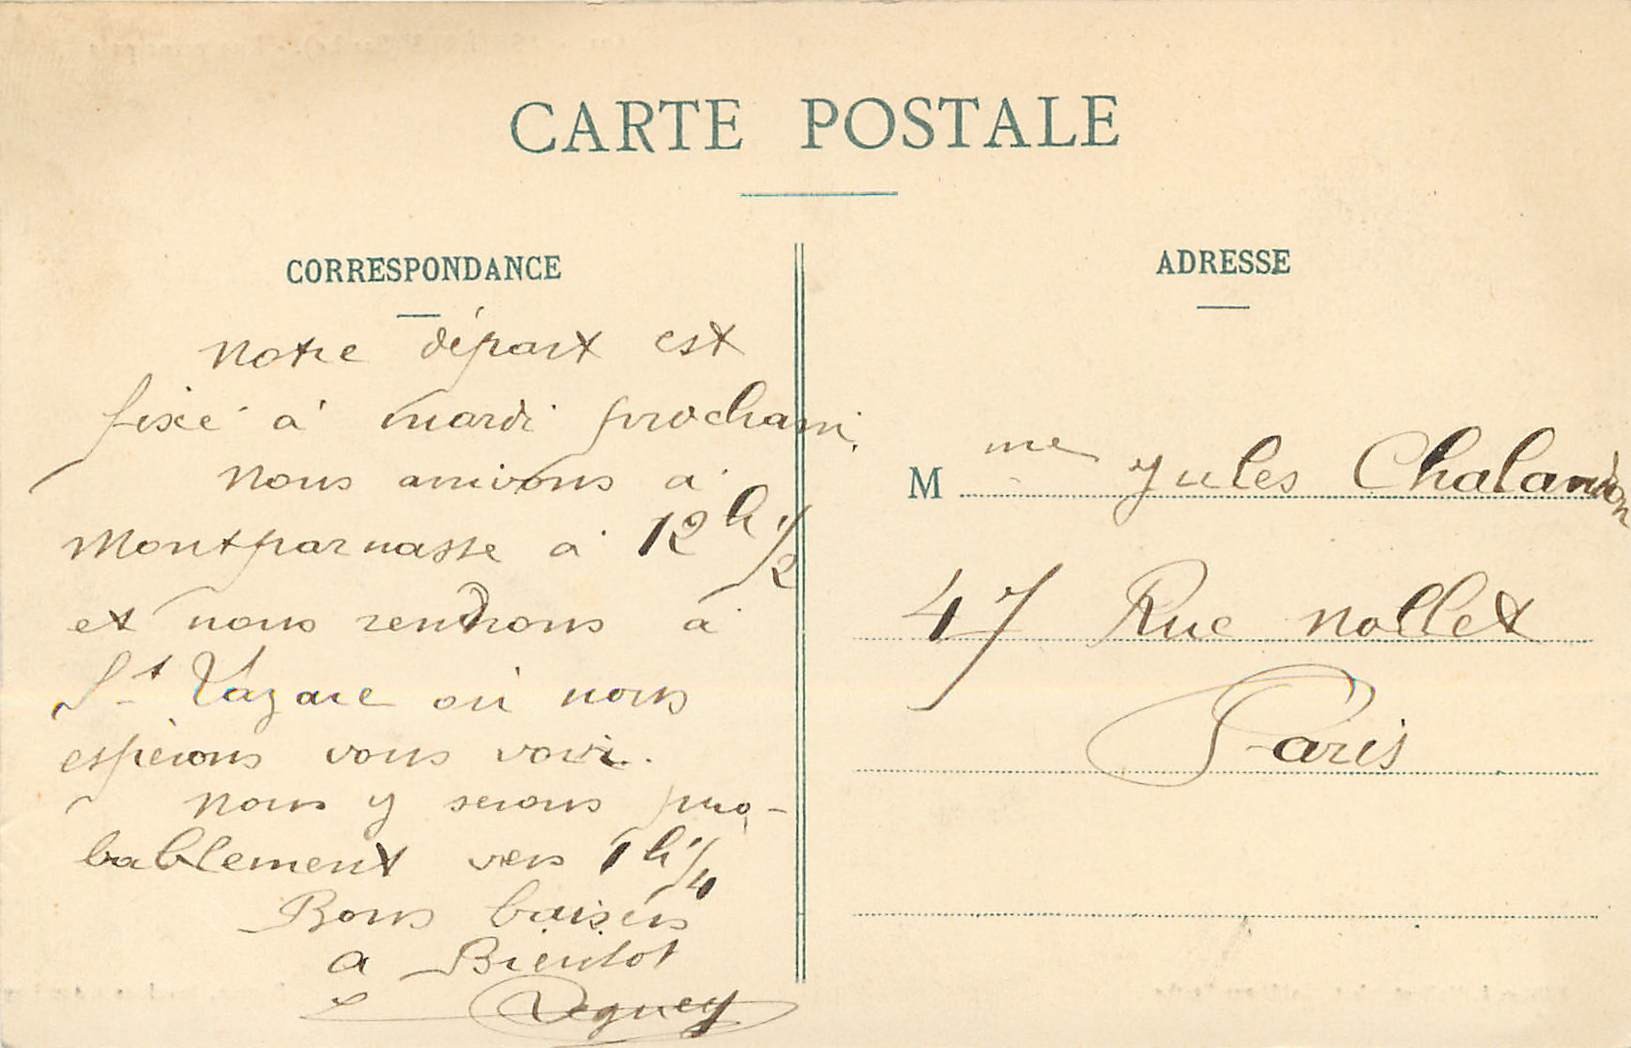 CARTE POSTALE
CORRESPONDANCE
Notre départ est
fixé à mardi prochain.
Nous arrivons à
Montparnasse à 12 h 1/2
et nous rendrons à
St Lazare où nous
espérons vous voir.
Nous y serons pro-
bablement vers 1 h 1/4
Bons baisers
a Bientot
ADRESSE
Mme Jules Chalandon
47 Rue Nollet
Paris